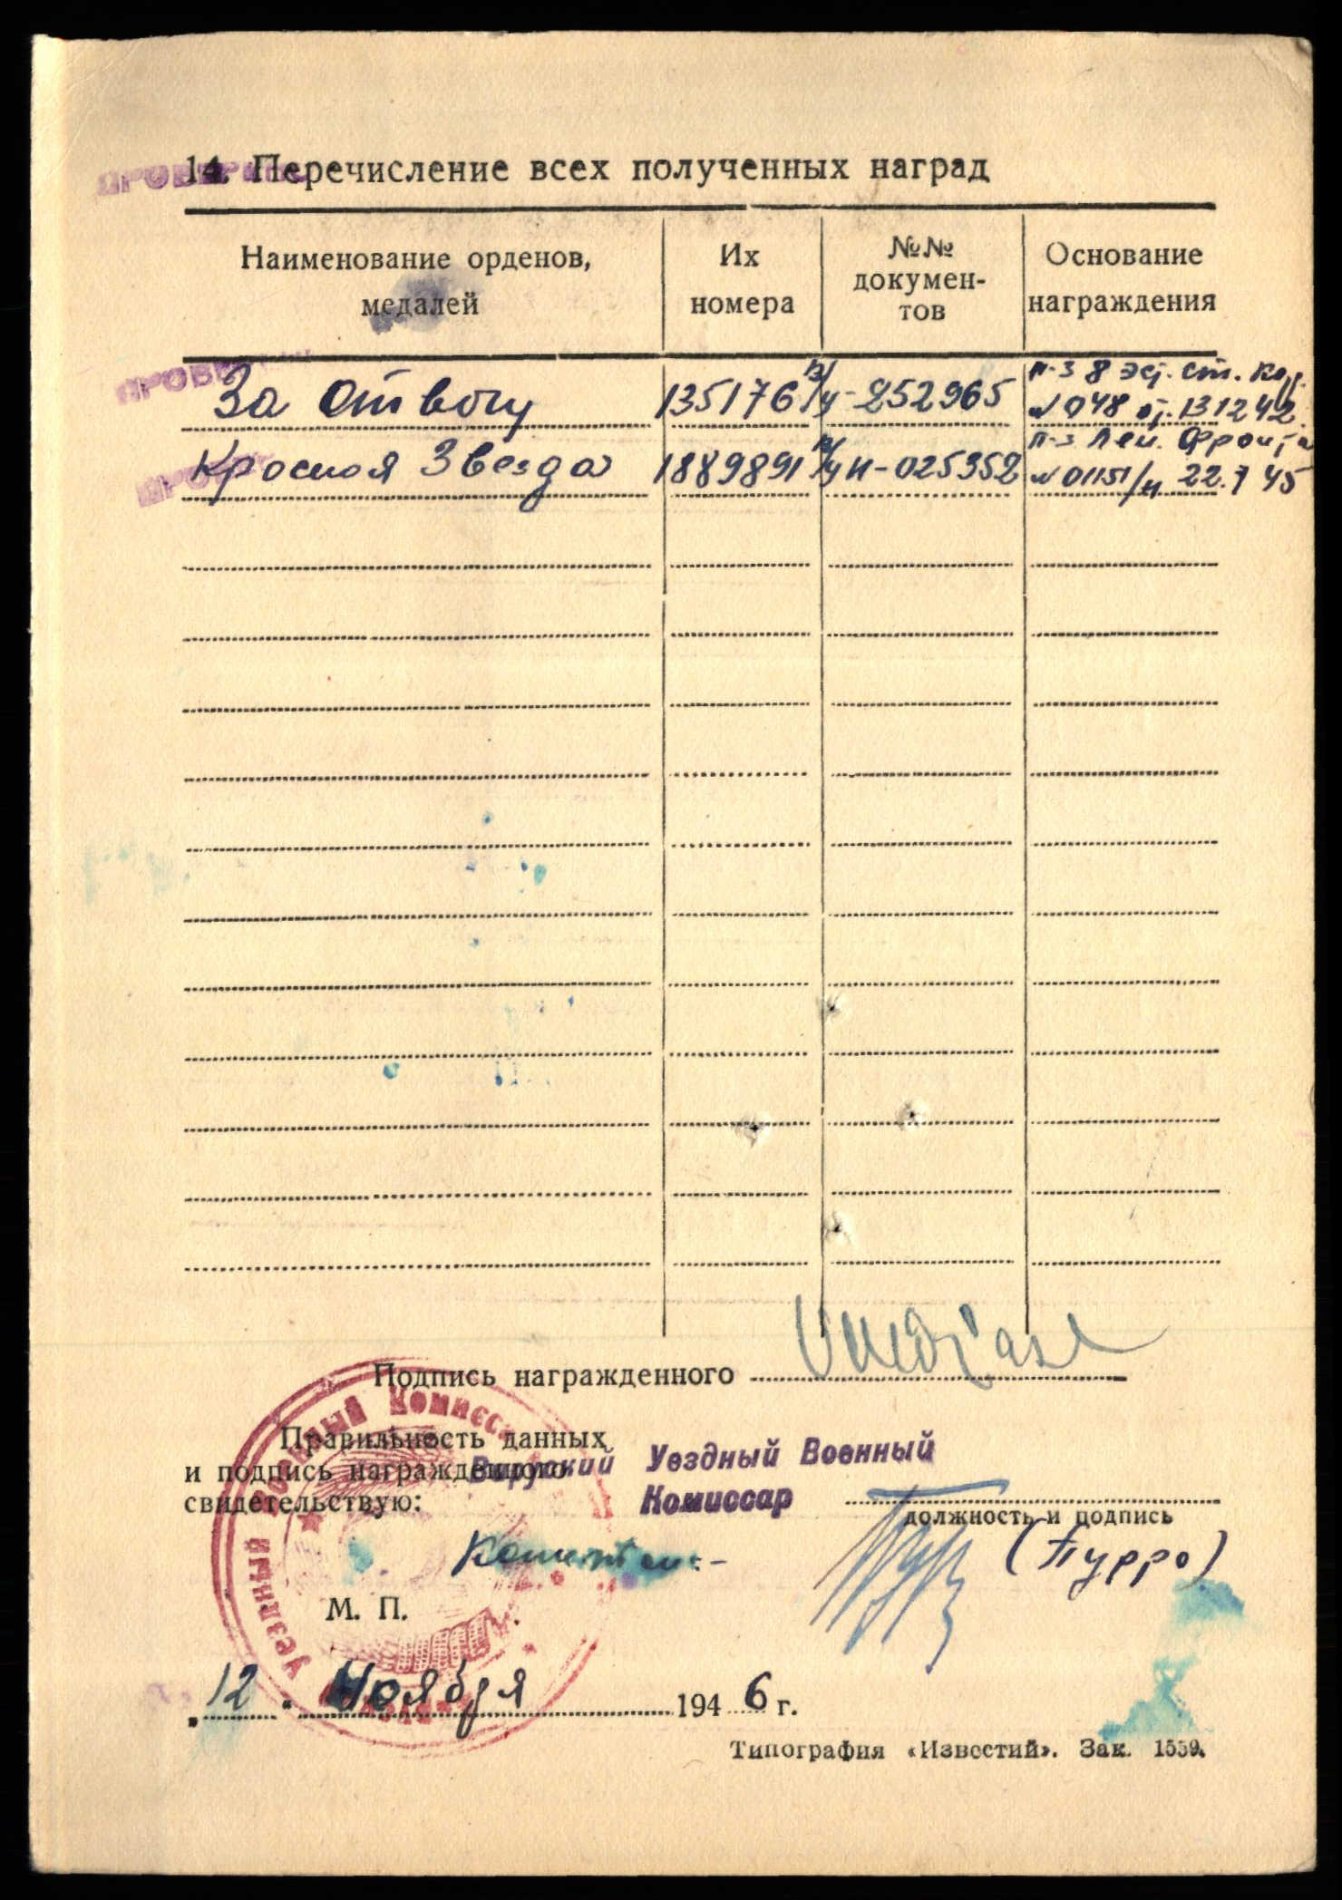 14. Перечисление всех полученных наград
ПРОВЕРЕНО
Наименование орденов, медалей
Их номера
№№ документов
Основание награждения
За отвагу 135176 У-252965 П-з 8 Эс. ст. кор. № 048 от 131242
Красная Звезда 1889891 И-025352 П-з Лен. Фронта № 01151/н 22.7 45
Подпись награжденного
Правильность данных
и подпись награжденного
свидетельствую:
Вируский Уездный Военный
Комиссар
должность и подпись
(Пурро)
М. П.
"12" Ноября 1946 г.
Типография «Известий». Зак. 1559.